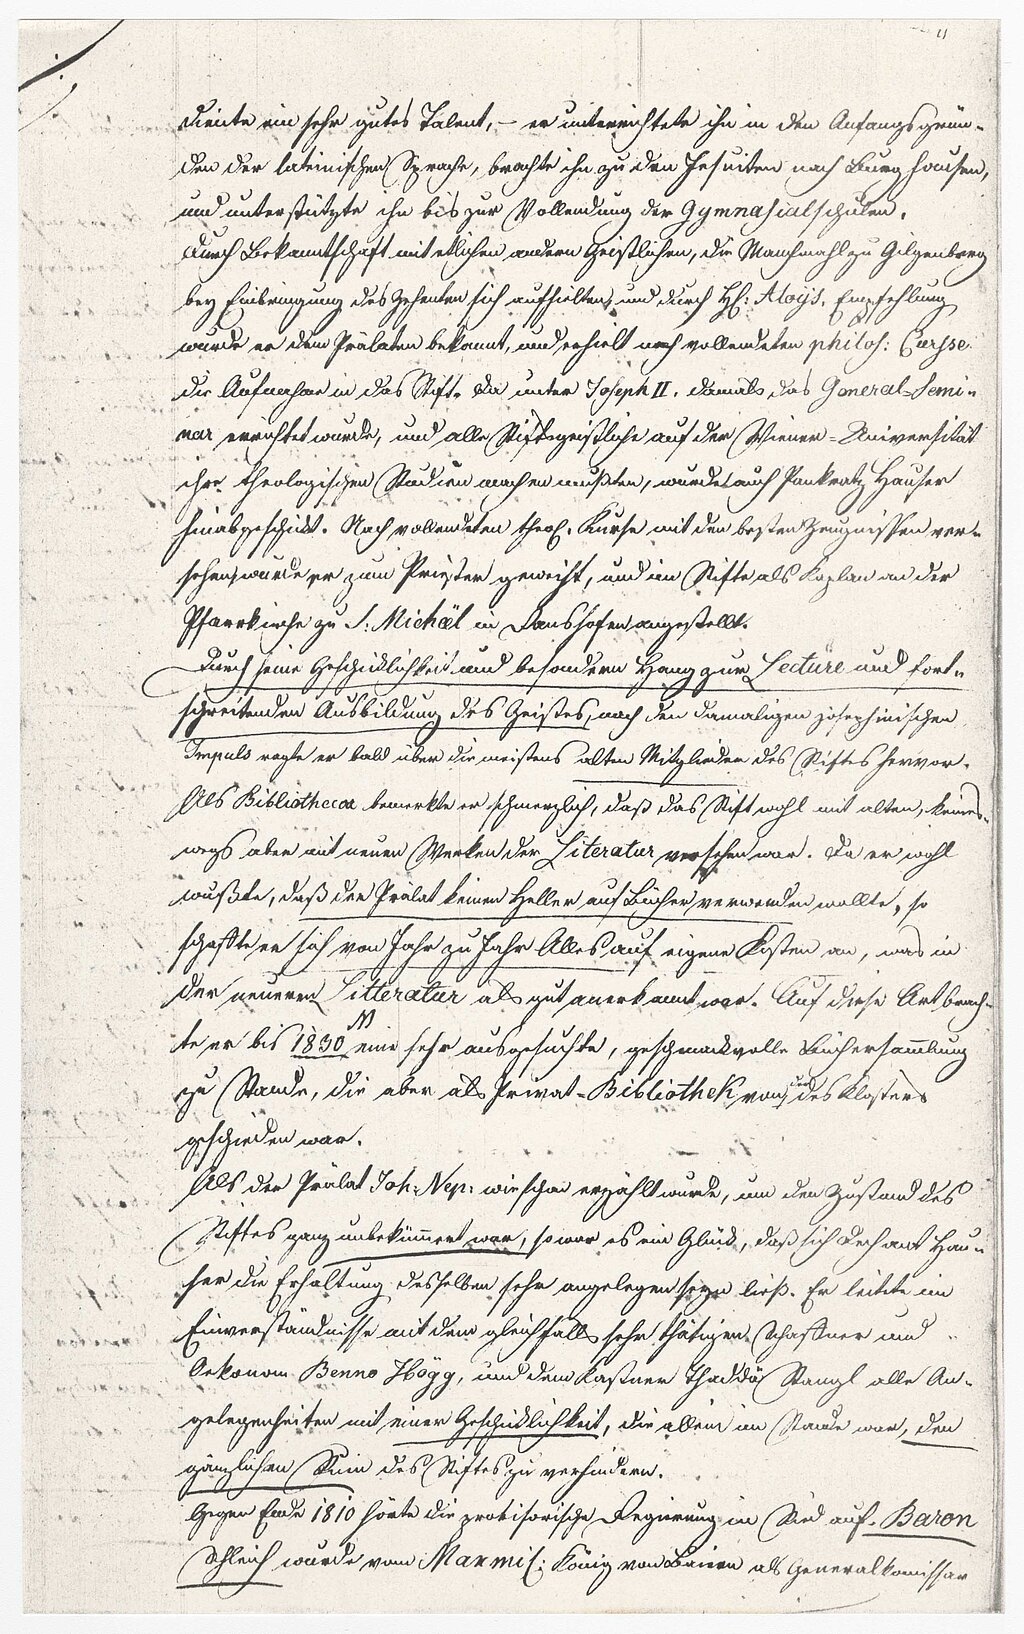 11
diente ein sehr gutes Talent, – er unterrichtete ihn in den Anfangsgrün-
den der lateinischen Sprache, brachte ihn zu den Jesuiten nach Burghausen,
und unterstützte ihn bis zur Vollendung der Gymnasialschulen.
Durch Bekanntschaft mit etlichen andern Geistlichen, die Manchmahl zu Gilgenberg
bey Einbringung des Zehenten sich aufhielten, und durch H: Aloys. Empfehlung
wurde er dem Prälaten bekannt, und erhielt nach vollendeten philos: Curse
die Aufnahme in das Stift. Da unter Joseph II. damals das General-Semi-
nar errichtet wurde, und alle Stiftsgeistliche auf der Wiener-Universität
ihre theologischen Studien machen mußten, wurde auch Pankratz Hauser
hinabgeschickt. Nach vollendeten theol. Kurse mit den besten Zeugnissen ver-
sehen, wurde er zum Priester geweiht, und im Stifte als Kaplan an der
Pfarrkirche zu S. Michäl in Ranshofen angestellt.
Durch seine Geschicklichkeit und besondern Hang zur Lectüre und fort-
schreitenden Ausbildung des Geistes, nach dem damaligen josephinischen
Impuls ragte er bald über die meistens alten Mitglieder des Stiftes hervor.
Als Bibliothecar bemerkte er schmerzlich, daß das Stift wohl mit alten, keines-
wegs aber mit neuen Werken der Literatur versehen war. Da er wohl
wußte, daß der Prälat keinen Heller auf Bücher verwenden wollte, so
schaffte er sich von Jahr zu Jahr Alles auf eigene Kosten an, was in
der neueren Litteratur als gut anerkannt war. Auf diese Art brach-
te er bis 1830 eine sehr ausgesuchte, geschmackvolle Büchersammlung
zu Stande, die aber als Privat-Bibliothek von der des Klosters
geschieden war.
Als der Prälat Joh: Nep: wie schon erzählt wurde, um den Zustand des
Stiftes ganz unbekümmert war, so war es ein Glück, daß sich Dechant Hau-
ser die Erhaltung desselben sehr angelegen seyn ließ. Er leitete im
Einverständnisse mit dem gleichfalls sehr thätigen Schaffner und
Oekonom Benno Högg, und dem Kastner Thaddä Stangl alle An-
gelegenheiten mit einer Geschicklichkeit, die allein im Stande war, den
gänzlichen Ruin des Stiftes zu verhindern.
Gegen Ende 1810 hörte die provisorische Regierung in Ried auf. Baron
Schleich wurde vom Maxmil: König von Baiern als Generalkomissar